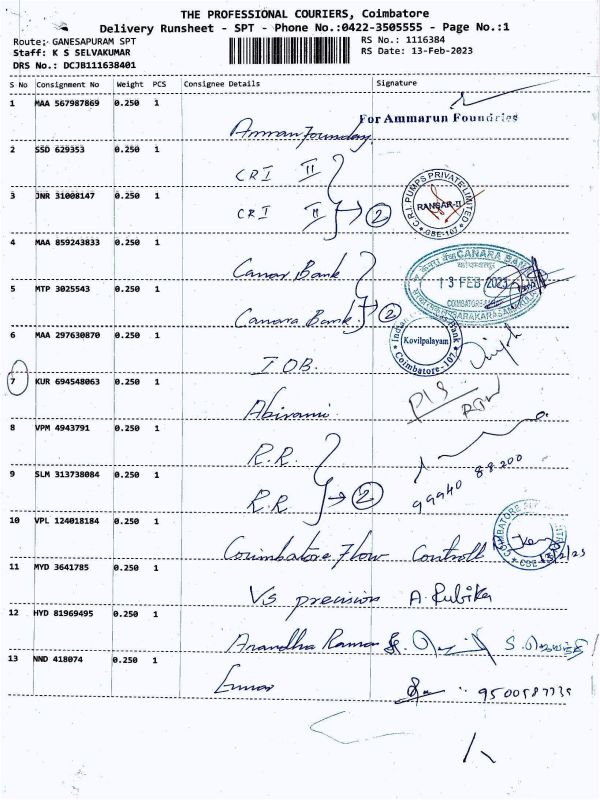 THE PROFESSIONAL COURIERS, Coimbatore
Delivery Runsheet - SPT - Phone No.:0422-3505555 - Page No.:1
Route: GANESAPURAM SPT
RS No.: 1116384
Staff: K S SELVAKUMAR
RS Date: 13-Feb-2023
DRS No.: DCJB111638401
S No Consignment No Weight PCS Consignee Details Signature
1 MAA 567987869 0.250 1
For Ammarun Foundries
2 SSD 629353 0.250 1
CRI II
3 JNR 31008147 0.250 1
CRI II 2
C.R.I. PUMPS PRIVATE LIMITED
RANSAR-II
CBE-107
4 MAA 859243833 0.250 1
Canar Bank
CANARA BANK
13 FEB 2023
5 MTP 3025543 0.250 1
Canara Bank 2
6 MAA 297630870 0.250 1
IOB.
Bank
Kovilpalayam
Coimbatore-107
7 KUR 694548063 0.250 1
Abirami
D/S
8 VPM 4943791 0.250 1
R.R.
9 SLM 313738084 0.250 1
RR 2
99940 88200
10 VPL 124018184 0.250 1
Coimbatore Flow Controll
11 MYD 3641785 0.250 1
Vs precision A. Rubika
12 HYD 81969495 0.250 1
13 NND 418074 0.250 1